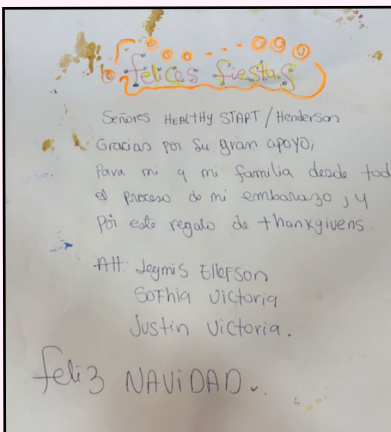 felices fiestas
Señores HEALTHY START / Henderson
Gracias por su gran apoyo,
Para mi y mi familia desde tod
el proceso de mi embarazo, y
Por este regalo de thanxgivens.
Att: Jeymis Ellefson
Sofhia Victoria
Justin Victoria.
feliz NAVIDAD